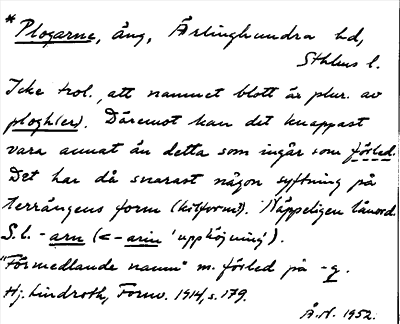 *Plogarne, äng, Ärlinghundra hd,
Sthlms l.
Icke trol., att namnet blott är plur. av
plogh(er). Däremot kan det knappast
vara annat än detta som ingår som förled.
Det har då snarast någon syftning på
terrängens form (kilform?). Näppeligen lånord.
S.l. -arn (<-arin 'upphöjning').
"Förmedlande namn" m. förled på -g.
Hj. Lindroth, Fornv. 1914, s. 179.
Å.N. 1952.